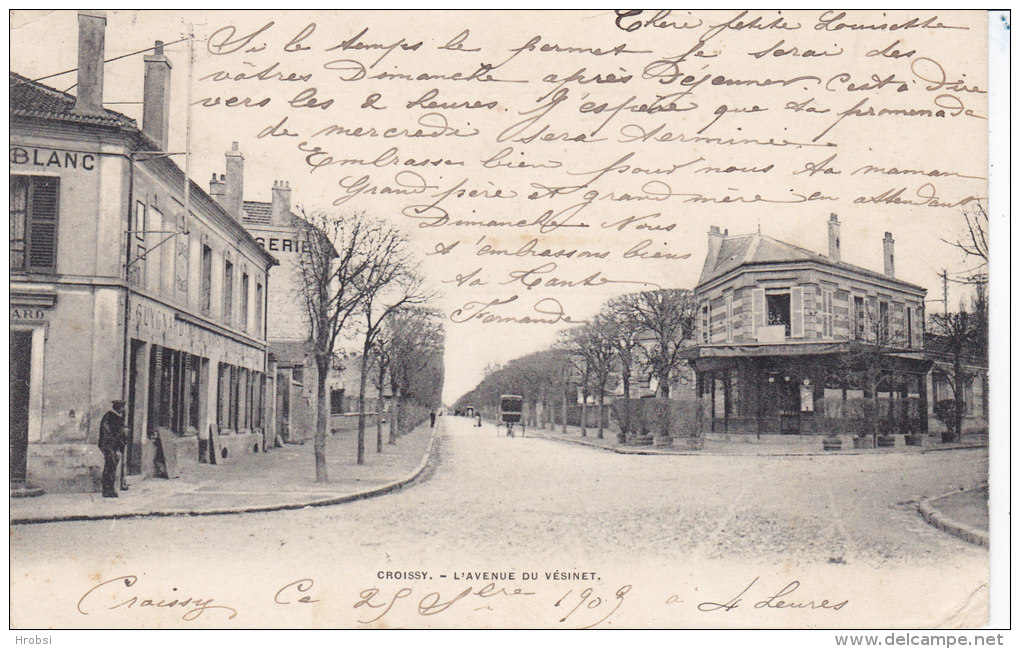 Chère petite Louisette
Si le temps le permet je serai des
vôtres Dimanche après Déjeuner. C'est à dire
vers les 2 heures. J'espère que ta promenade
de mercredi sera terminée.
Embrasse bien pour nous ta maman
Grand père et grand mère en attendant
Dimanche. Nous
t'embrassons biens
ta tante
Fernande
BLANC
GERIE
ARD
CROISSY. - L'AVENUE DU VÉSINET.
Croissy Ce 25 Sbre 1903 à 4 heures
Hrobsi
www.delcampe.net